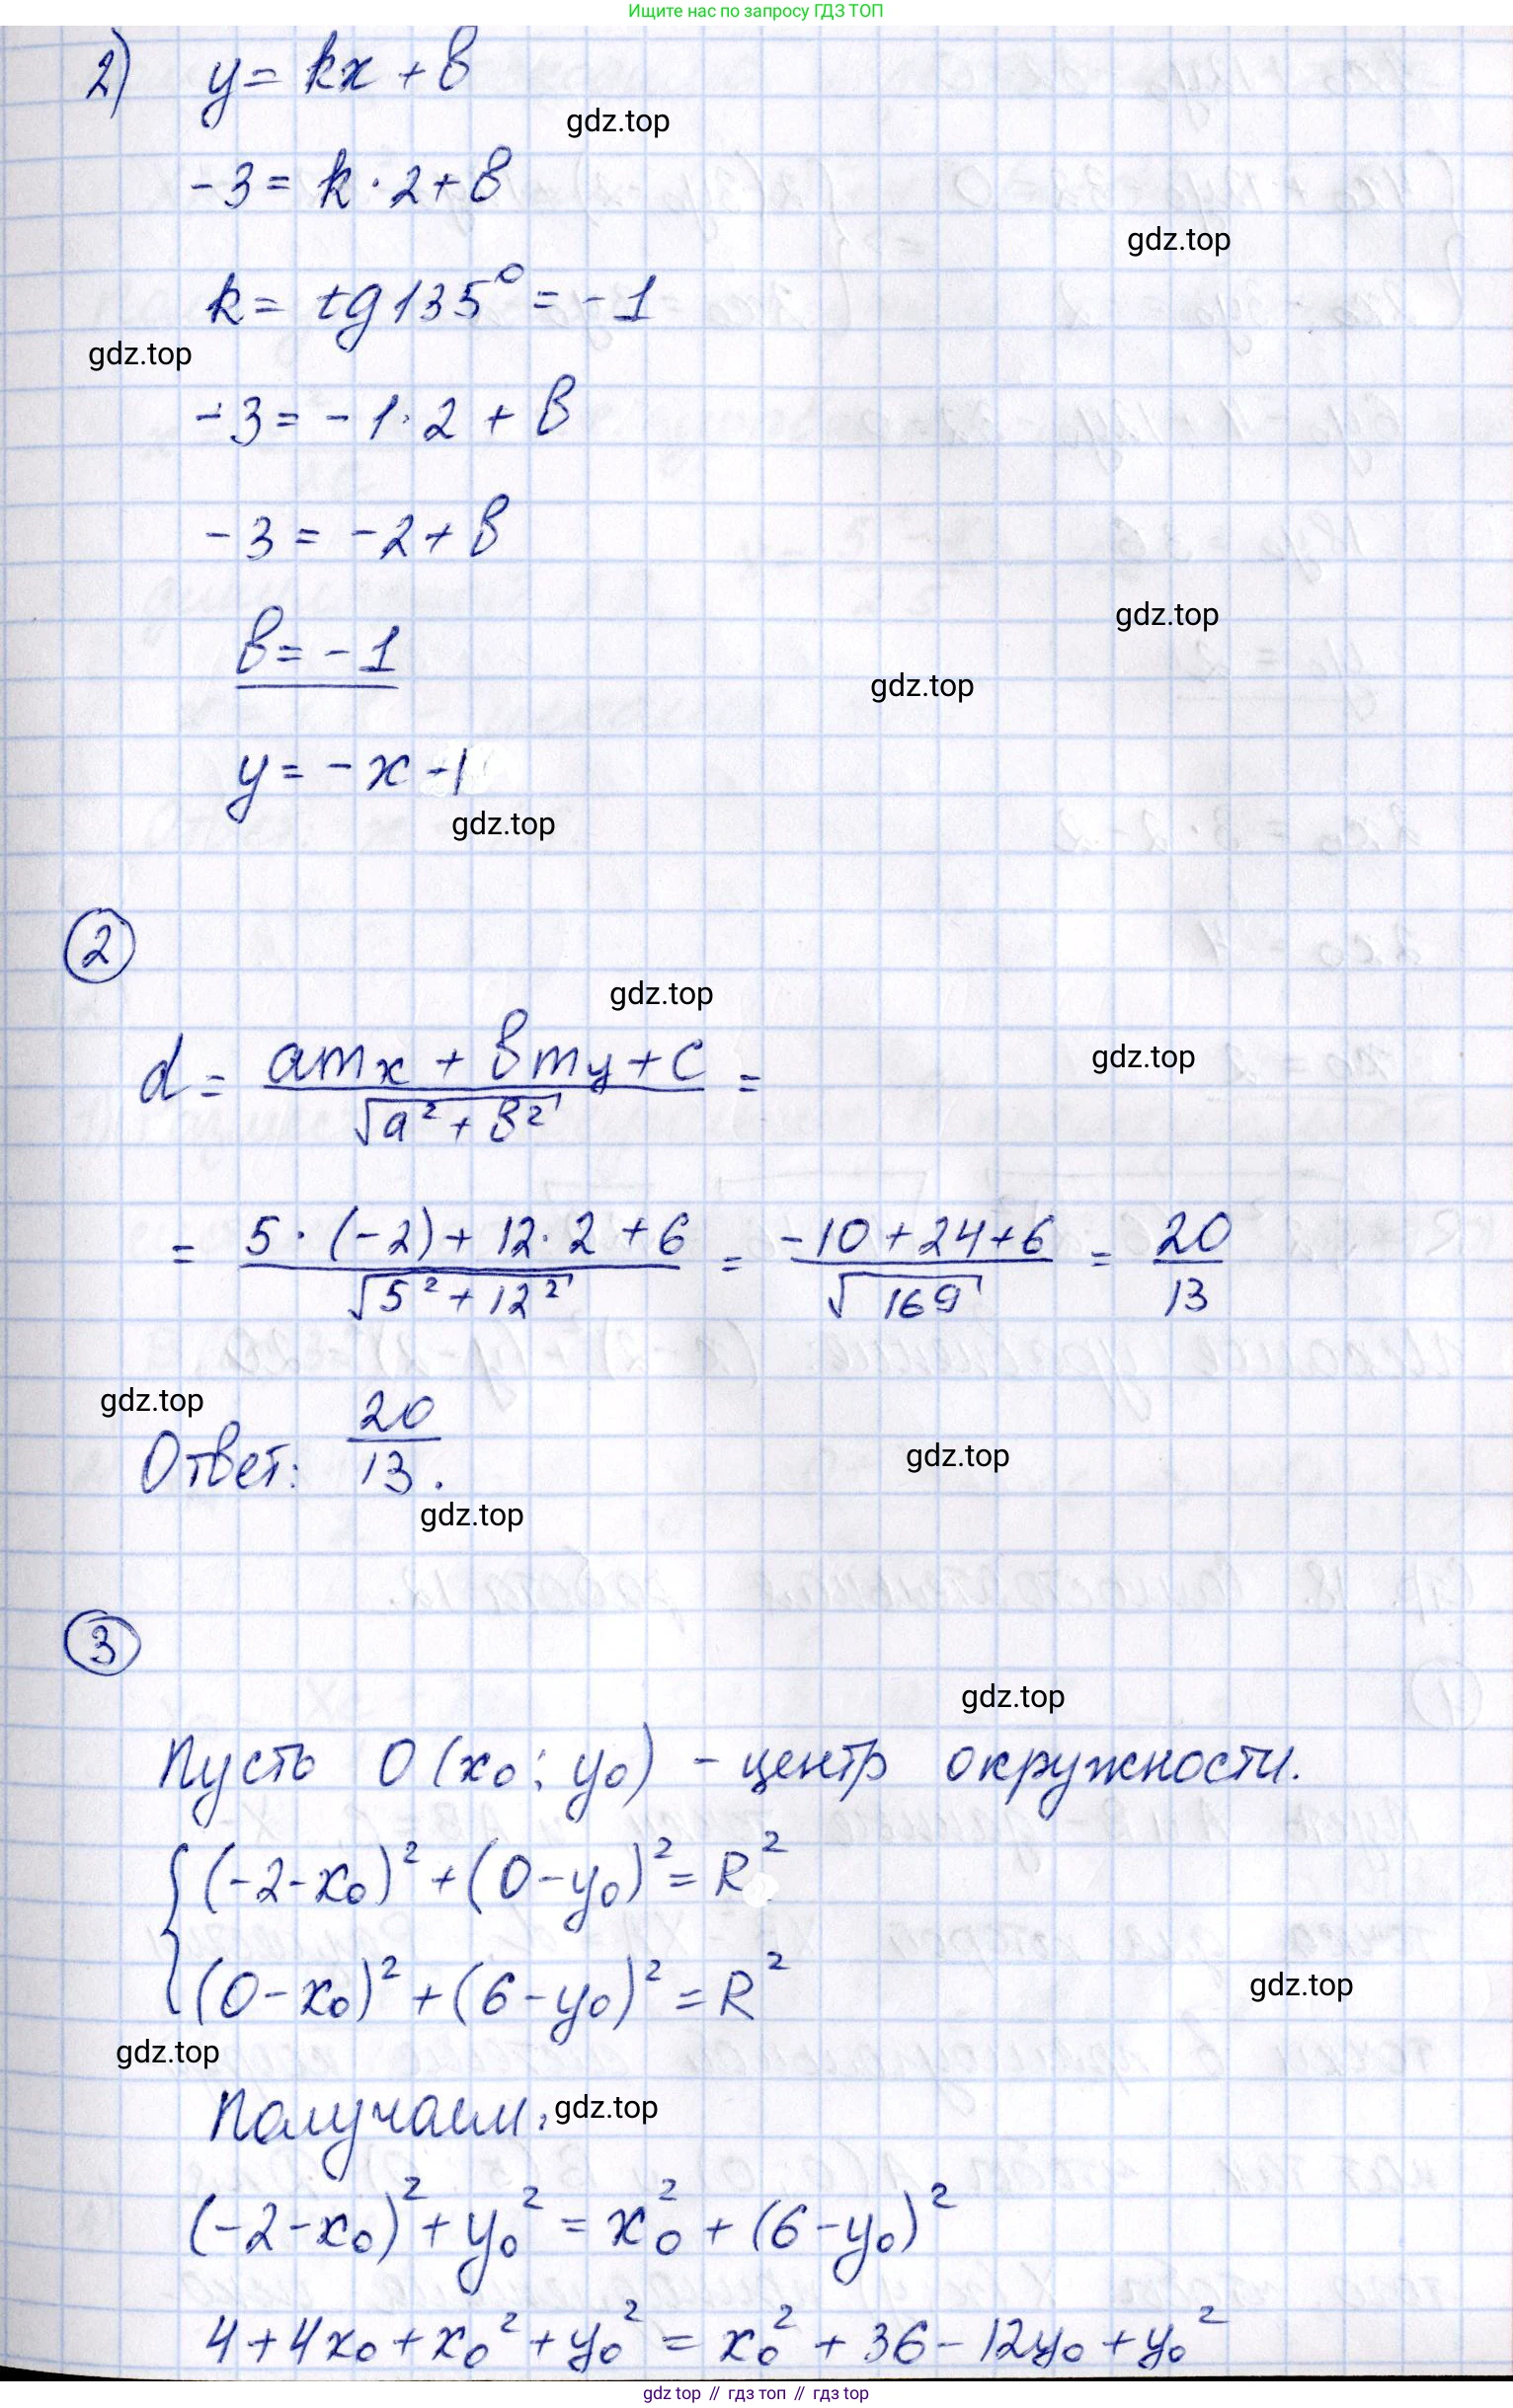 Ищите нас по запросу ГДЗ ТОП
2) y = kx + в
gdz.top
-3 = k · 2 + в
gdz.top
k = tg 135° = -1
gdz.top
-3 = -1 · 2 + в
-3 = -2 + в
gdz.top
в = -1
gdz.top
y = -x - 1
gdz.top
2
gdz.top
d = (amx + вmy + c) / √(a² + в²) =
gdz.top
= (5 · (-2) + 12 · 2 + 6) / √(5² + 12²) = (-10 + 24 + 6) / √169 = 20/13
gdz.top
Ответ: 20/13.
gdz.top
gdz.top
3
gdz.top
Пусть O(x₀; y₀) - центр окружности.
(-2 - x₀)² + (0 - y₀)² = R²
(0 - x₀)² + (6 - y₀)² = R²
gdz.top
gdz.top
Получаем:
gdz.top
(-2 - x₀)² + y₀² = x₀² + (6 - y₀)²
4 + 4x₀ + x₀² + y₀² = x₀² + 36 - 12y₀ + y₀²
gdz top // гдз топ // гдз top